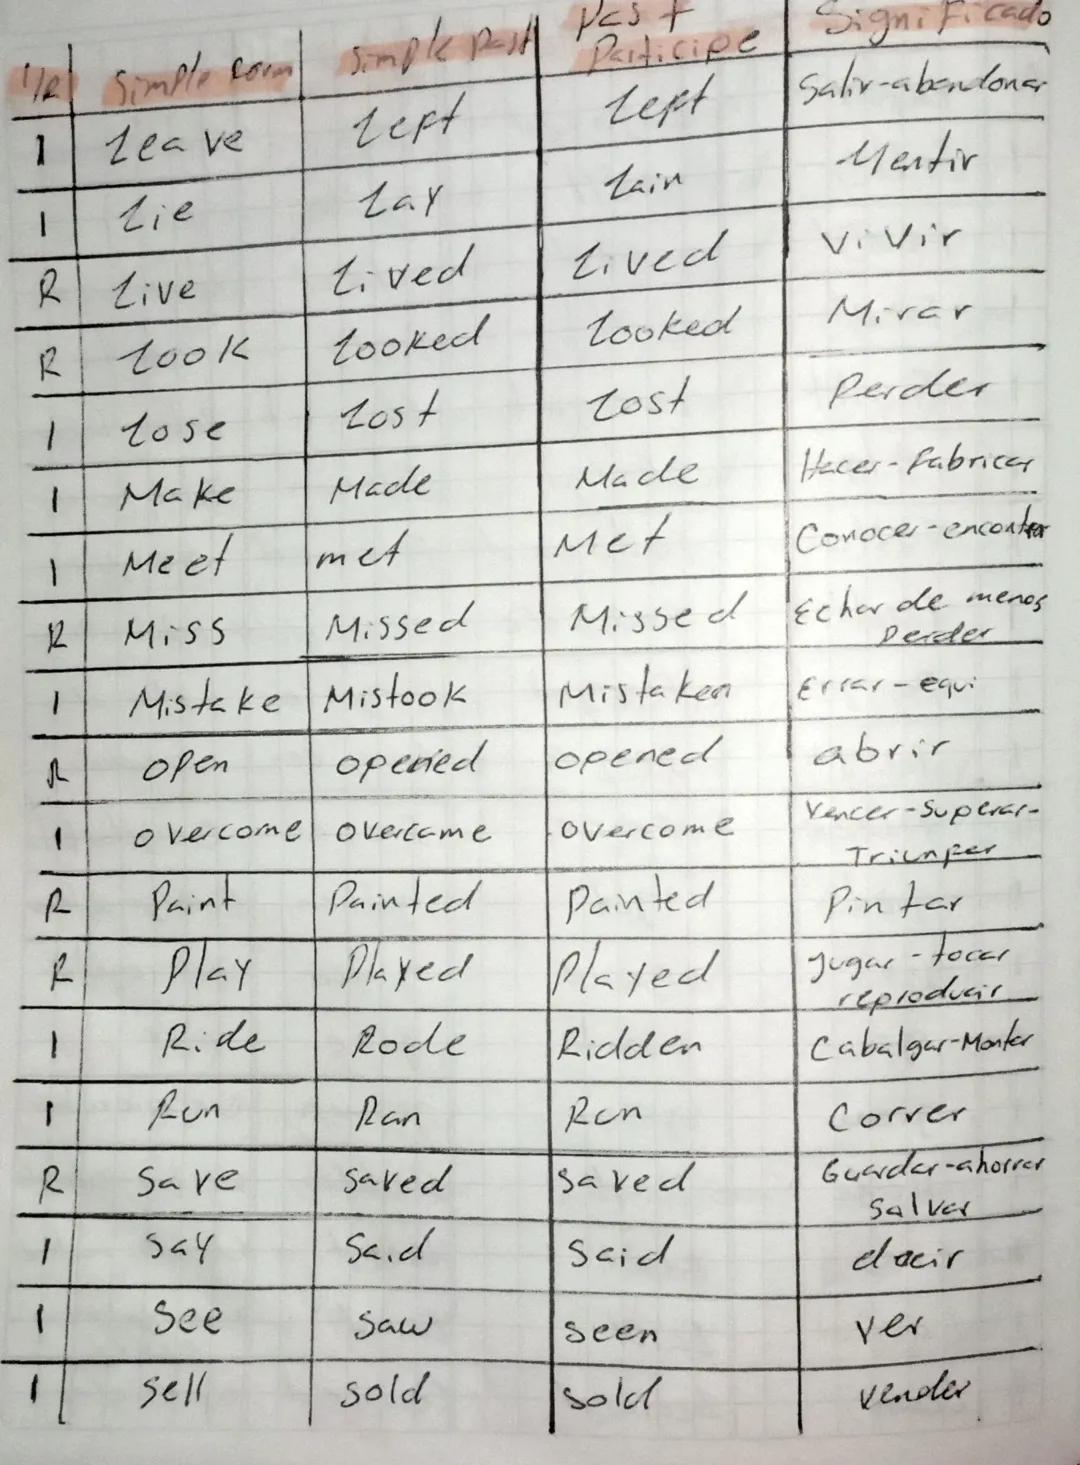 I/R Simple Form Simple Past Past Participe Significado
I Leave Left Left Salir-abandonar
I Lie Lay Lain Mentir
R Live Lived Lived Vivir
R Look Looked Looked Mirar
I Lose Lost Lost Perder
I Make Made Made Hacer-Fabricar
I Meet met Met Conocer-encontrar
R Miss Missed Missed Echar de menos
Perder
I Mistake Mistook Mistaken Errar-equi
R open opened opened abrir
I overcome overcame overcome Vencer-Superar-
Triunfar
R Paint Painted Painted Pintar
R Play Played Played Jugar-tocar
reproducir
I Ride Rode Ridden Cabalgar-Montar
I Run Ran Run Correr
R Save Saved Saved Guardar-ahorrar
Salvar
I Say Said Said decir
I See Saw Seen Ver
I Sell Sold Sold Vender